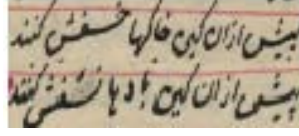 پیش ازان کین خاکها خسفش کنند
پیش ازان کین بادها نسفش کنند